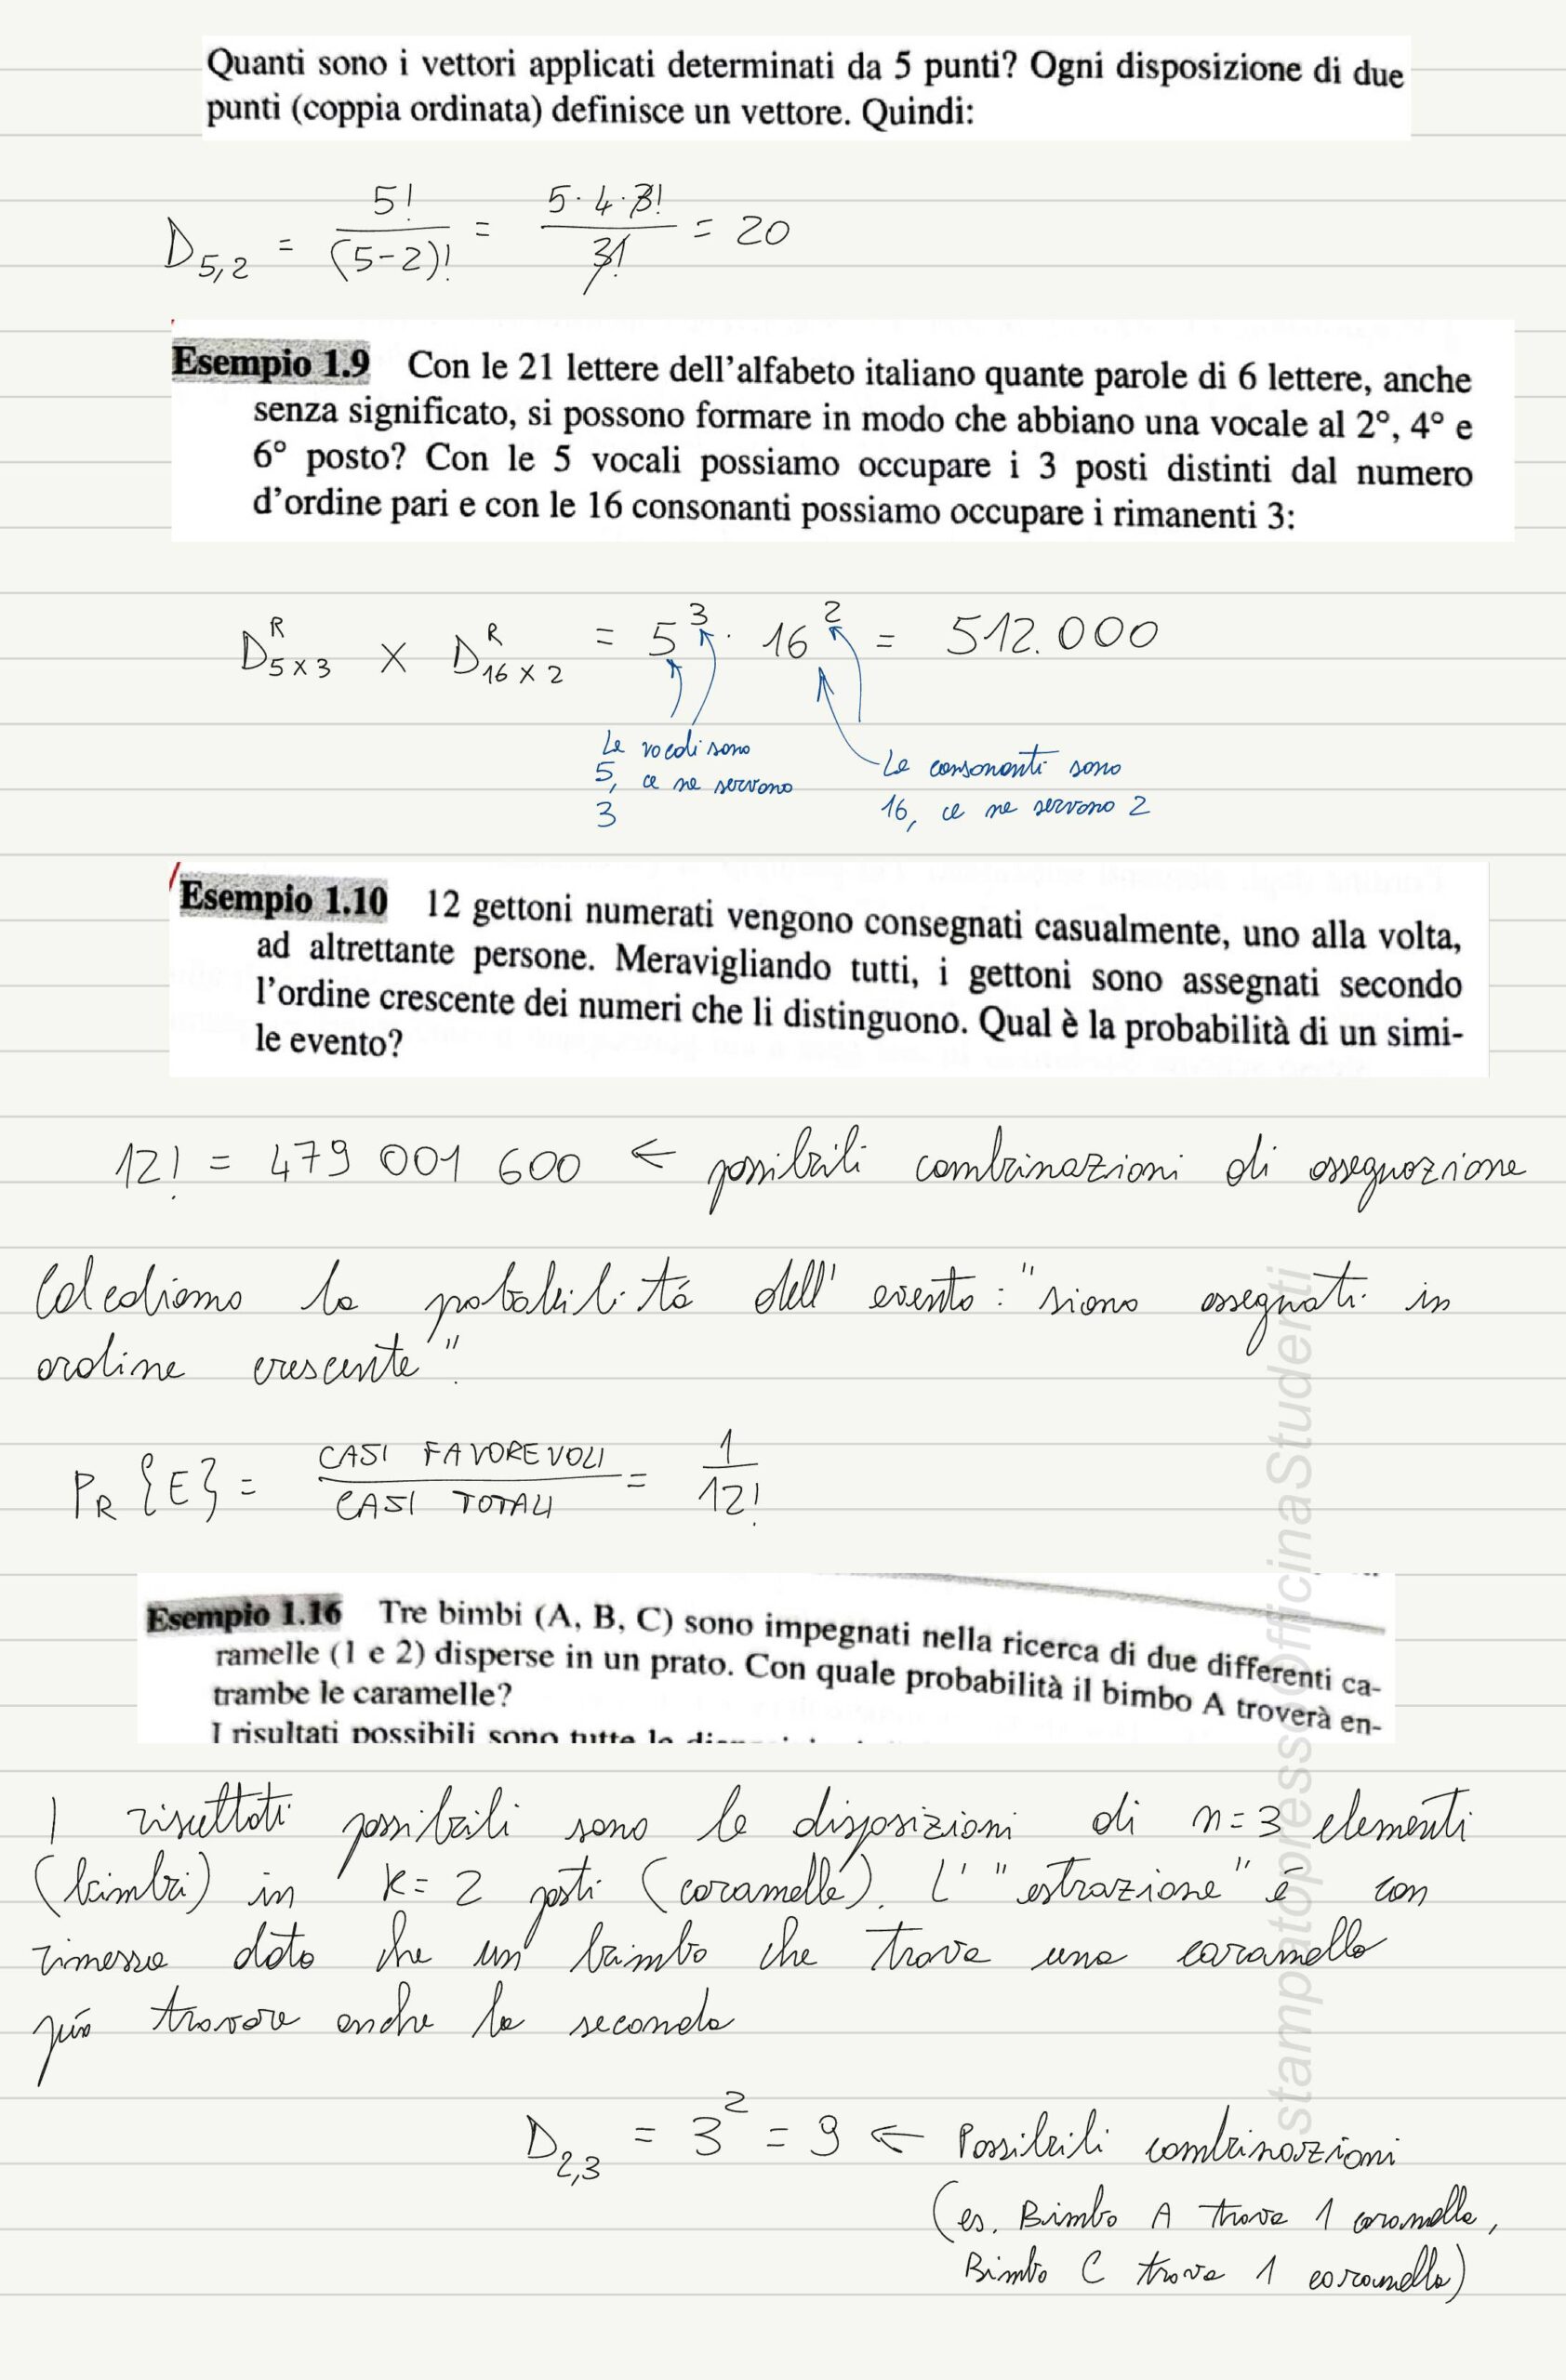 Quanti sono i vettori applicati determinati da 5 punti? Ogni disposizione di due
punti (coppia ordinata) definisce un vettore. Quindi:
D5,2 = 5! / (5-2)! = 5·4·3! / 3! = 20
Esempio 1.9 Con le 21 lettere dell'alfabeto italiano quante parole di 6 lettere, anche
senza significato, si possono formare in modo che abbiano una vocale al 2°, 4° e
6° posto? Con le 5 vocali possiamo occupare i 3 posti distinti dal numero
d'ordine pari e con le 16 consonanti possiamo occupare i rimanenti 3:
D^R 5x3 x D^R 16x2 = 5^3 · 16^2 = 512.000
Le vocali sono
5, ce ne servono
3
Le consonanti sono
16, ce ne servono 2
Esempio 1.10 12 gettoni numerati vengono consegnati casualmente, uno alla volta,
ad altrettante persone. Meravigliando tutti, i gettoni sono assegnati secondo
l'ordine crescente dei numeri che li distinguono. Qual è la probabilità di un simi-
le evento?
12! = 479 001 600 ← possibili combinazioni di assegnazione
Calcoliamo la probabilitá dell' evento: "siano assegnati in
ordine crescente".
PR {E} = CASI FAVOREVOLI / CASI TOTALI = 1 / 12!
Esempio 1.16 Tre bimbi (A, B, C) sono impegnati nella ricerca di due differenti ca-
ramelle (1 e 2) disperse in un prato. Con quale probabilità il bimbo A troverà en-
trambe le caramelle?
I risultati possibili sono tutte le
I risultati possibili sono le disposizioni di n=3 elementi
(bimbi) in k=2 posti (caramelle). L' "estrazione" é con
rimessa dato che un bimbo che trova una caramella
può trovare anche la seconda
D2,3 = 3^2 = 9 ← Possibili combinazioni
(es. Bimbo A trova 1 caramella,
Bimbo C trova 1 caramella)
stampatopressoOfficinaStudenti